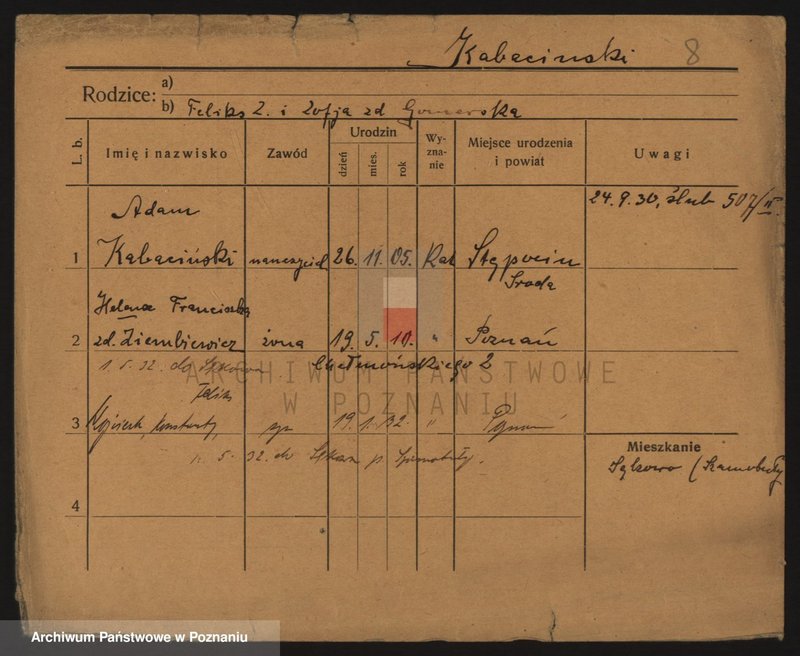 Kabacinski 8
Rodzice: a)
b) Feliks Z. i Zofja zd
L. b. Imię i nazwisko Zawód Urodzin dzień mies. rok Wy-zna-nie Miejsce urodzenia i powiat Uwagi
24.9.30, ślub 507/II
Adam
1 Kabaciński nauczyciel 26. 11. 05. Kat Stępocin
Środa
Helena Franciszka
2 zd. Ziembiewicz żona 19. 5. 10. " Poznań
1.5.32. do Chełmońskiego 2
Feliks
3 Wojciech, Konstanty, syn 19. 1. 32. " Poznań
5.32. do
Mieszkanie
Sękowo (Szamotuły
4
ARCHIWUM PAŃSTWOWE
W POZNANIU
Archiwum Państwowe w Poznaniu